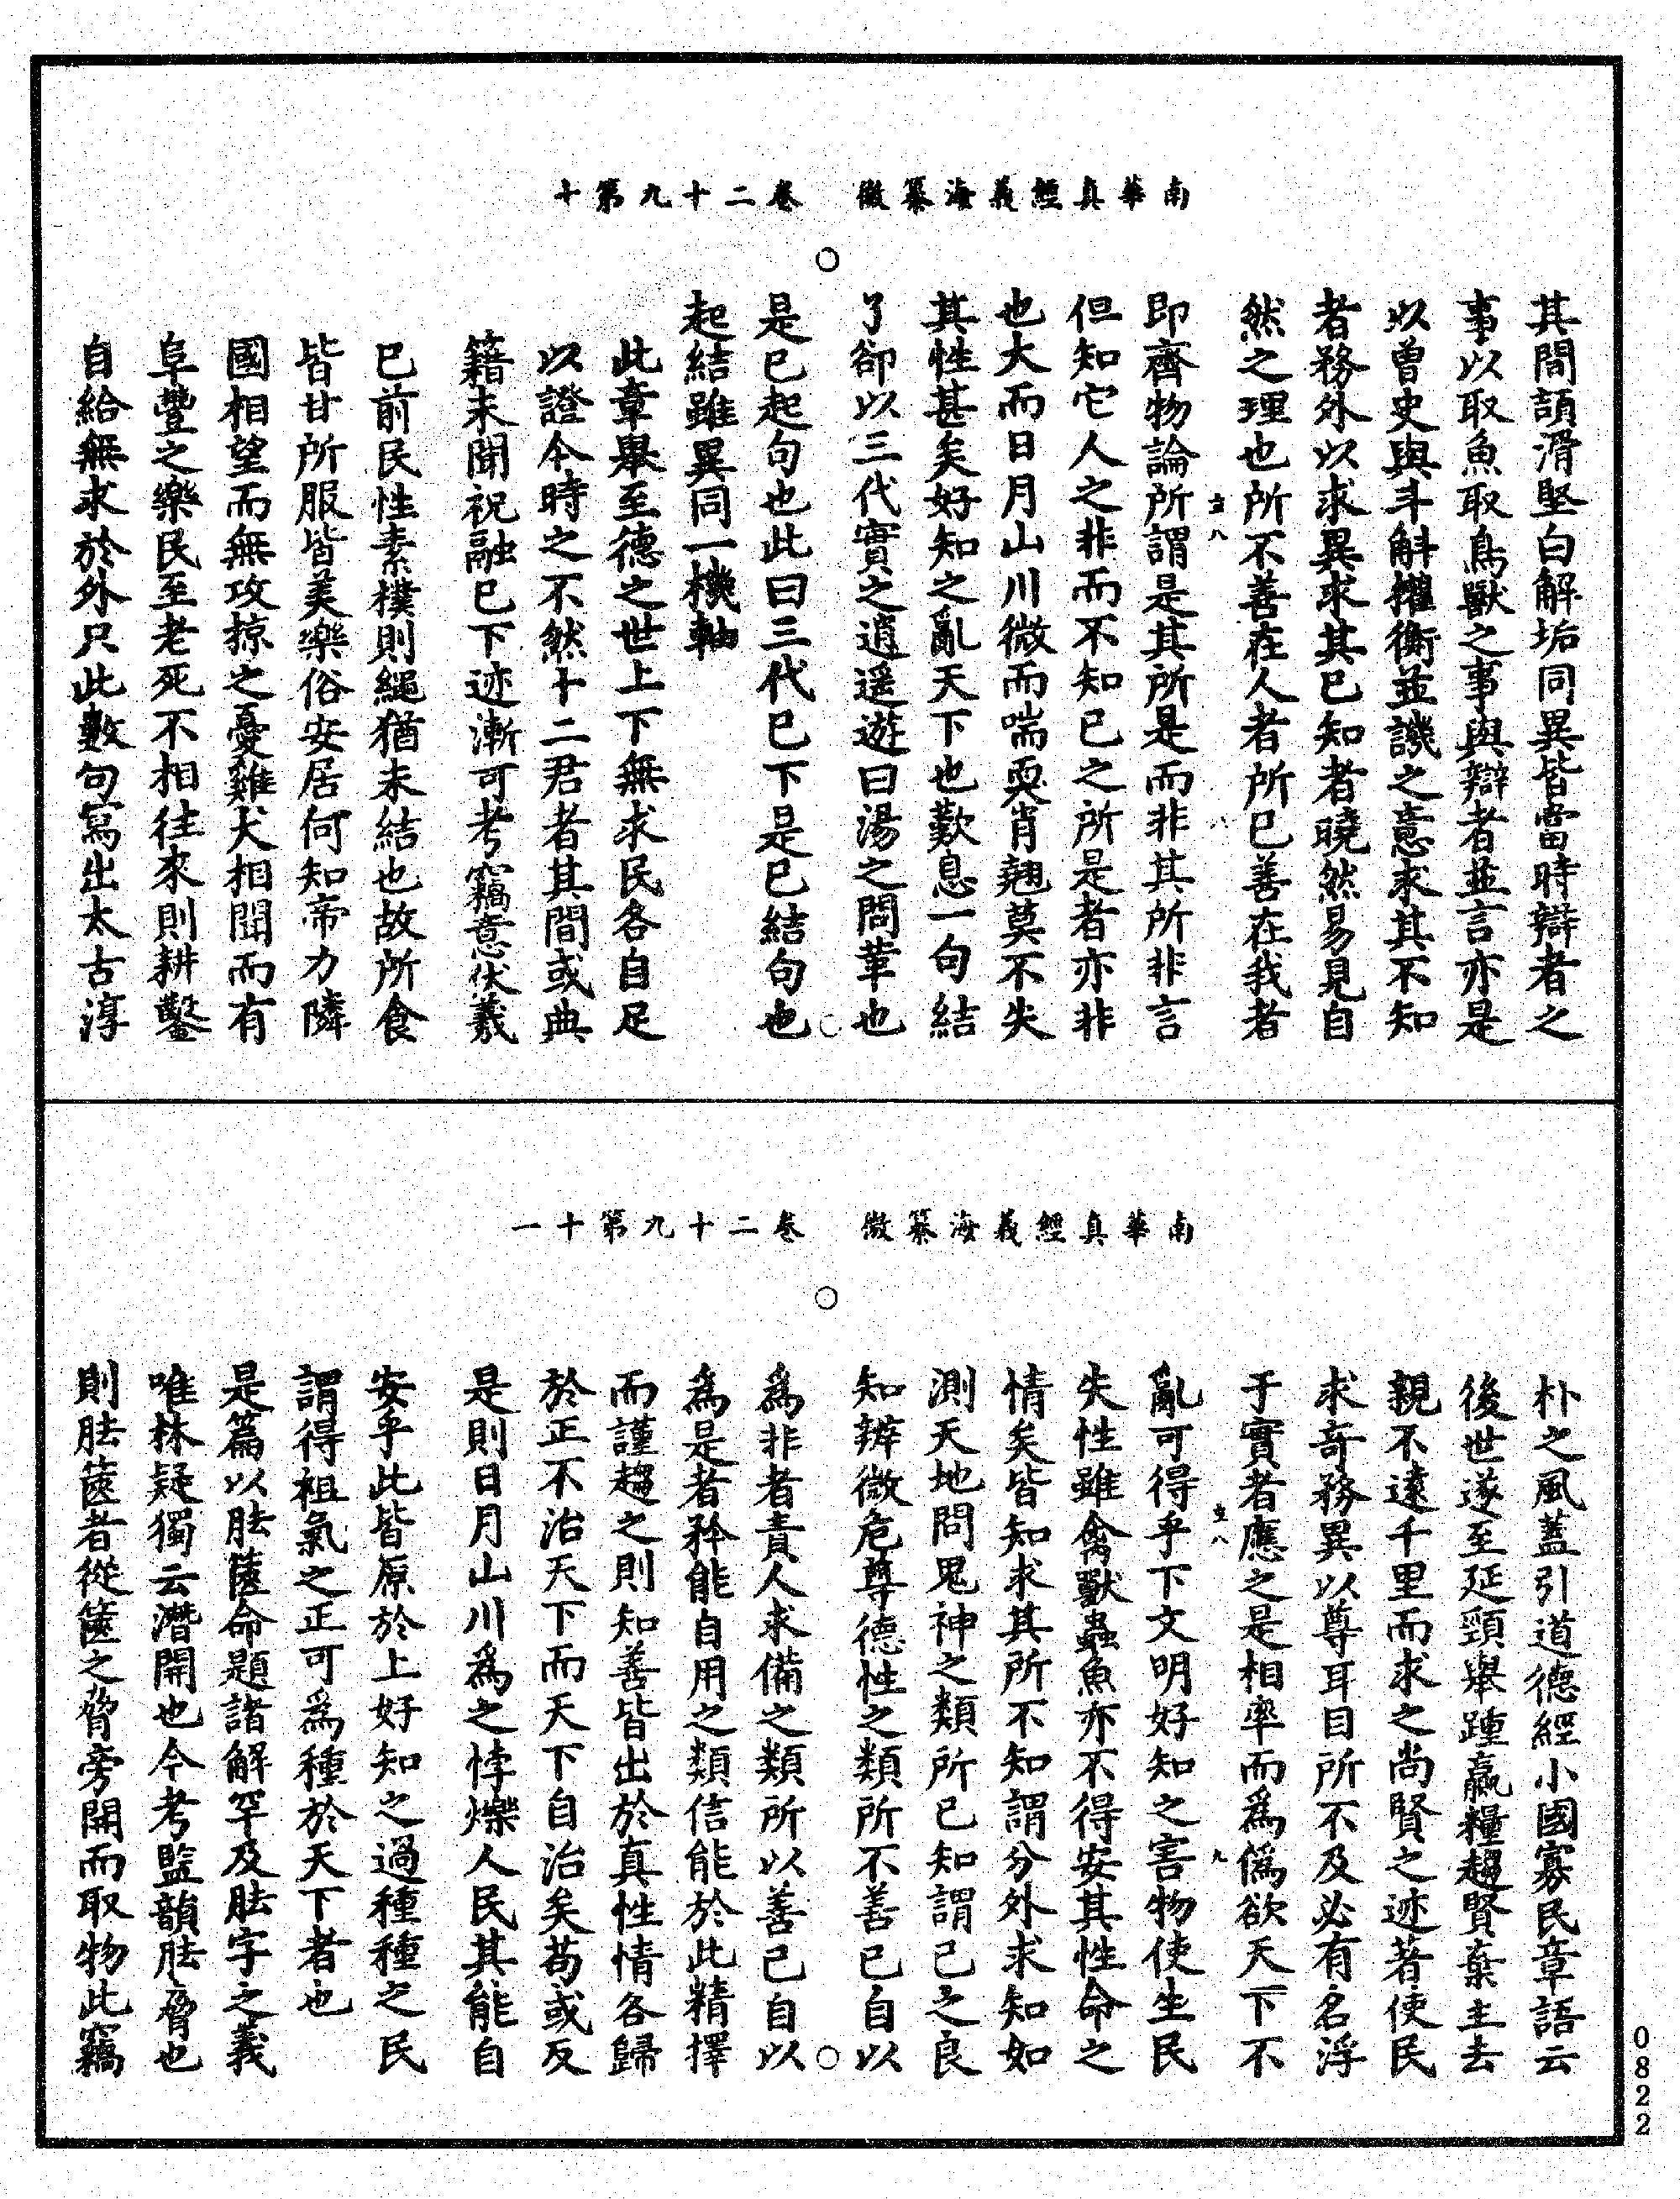 南華真經義海纂微　卷二十九第十
其間頡滑堅白解垢同異皆當時辯者之
事以取魚取鳥獸之事與辯者並言亦是
以曾史與斗斛權衡並譏之意求其不知
者務外以求異求其已知者曉然易見自
然之理也所不善在人者所已善在我者
即齊物論所謂是其所是而非其所非言
但知它人之非而不知己之所是者亦非
也大而日月山川微而喘耎肖翹莫不失
其性甚矣好知之亂天下也歎息一句結
了卻以三代實之逍遥遊曰湯之問革也
是已起句也此曰三代已下是已結句也
起結雖異同一機軸
此章舉至德之世上下無求民各自足
以證今時之不然十二君者其間或典
籍未聞祝融已下迹漸可考竊意伏羲
已前民性素樸則繩猶未結也故所食
皆甘所服皆美樂俗安居何知帝力隣
國相望而無攻掠之憂雞犬相聞而有
阜豐之樂民至老死不相往來則耕鑿
自給無求於外只此數句寫出太古淳
南華真經義海纂微　卷二十九第十一
朴之風蓋引道德經小國寡民章語云
後世遂至延頸舉踵贏糧趨賢棄主去
親不遠千里而求之尚賢之迹著使民
求奇務異以尊耳目所不及必有名浮
于實者應之是相率而為偽欲天下不
亂可得乎下文明好知之害物使生民
失性雖禽獸蟲魚亦不得安其性命之
情矣皆知求其所不知謂分外求知如
測天地問鬼神之類所已知謂己之良
知辨微危尊德性之類所不善已自以
為非者責人求備之類所以善己自以
為是者矜能自用之類信能於此精擇
而謹趨之則知善皆出於真性情各歸
於正不治天下而天下自治矣苟或反
是則日月山川為之悖爍人民其能自
安乎此皆原於上好知之過種種之民
謂得祖氣之正可為種於天下者也
是篇以胠篋命題諸解罕及胠字之義
唯林疑獨云潛開也今考監韻胠脅也
則胠篋者從篋之脅旁開而取物此竊
0822